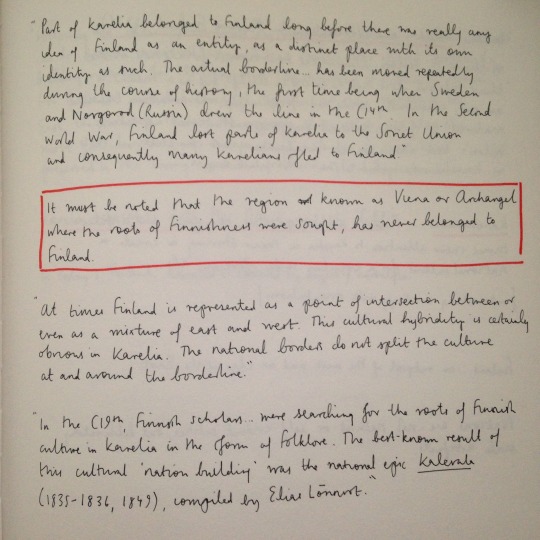 "Part of Karelia belonged to Finland long before there was really any
idea of Finland as an entity, as a distinct place with its own
identity as such. The actual borderline... has been moved repeatedly
during the course of history, the first time being when Sweden
and Novgorod (Russia) drew the line in the C14th. In the Second
World War, Finland lost parts of Karelia to the Soviet Union
and consequently many Karelians fled to Finland"
It must be noted that the region known as Viena or Archangel
where the roots of Finnishness were sought, has never belonged to
Finland.
"At times Finland is represented as a point of intersection between or
even as a mixture of east and west. This cultural hybridity is certainly
obvious in Karelia. The national borders do not split the culture
at and around the borderline."
"In the C19th, Finnish scholars... were searching for the roots of Finnish
culture in Karelia in the form of folklore. The best-known result of
this cultural 'nation building' was the national epic Kalevala
(1835-1836, 1849), compiled by Elias Lönnrot."